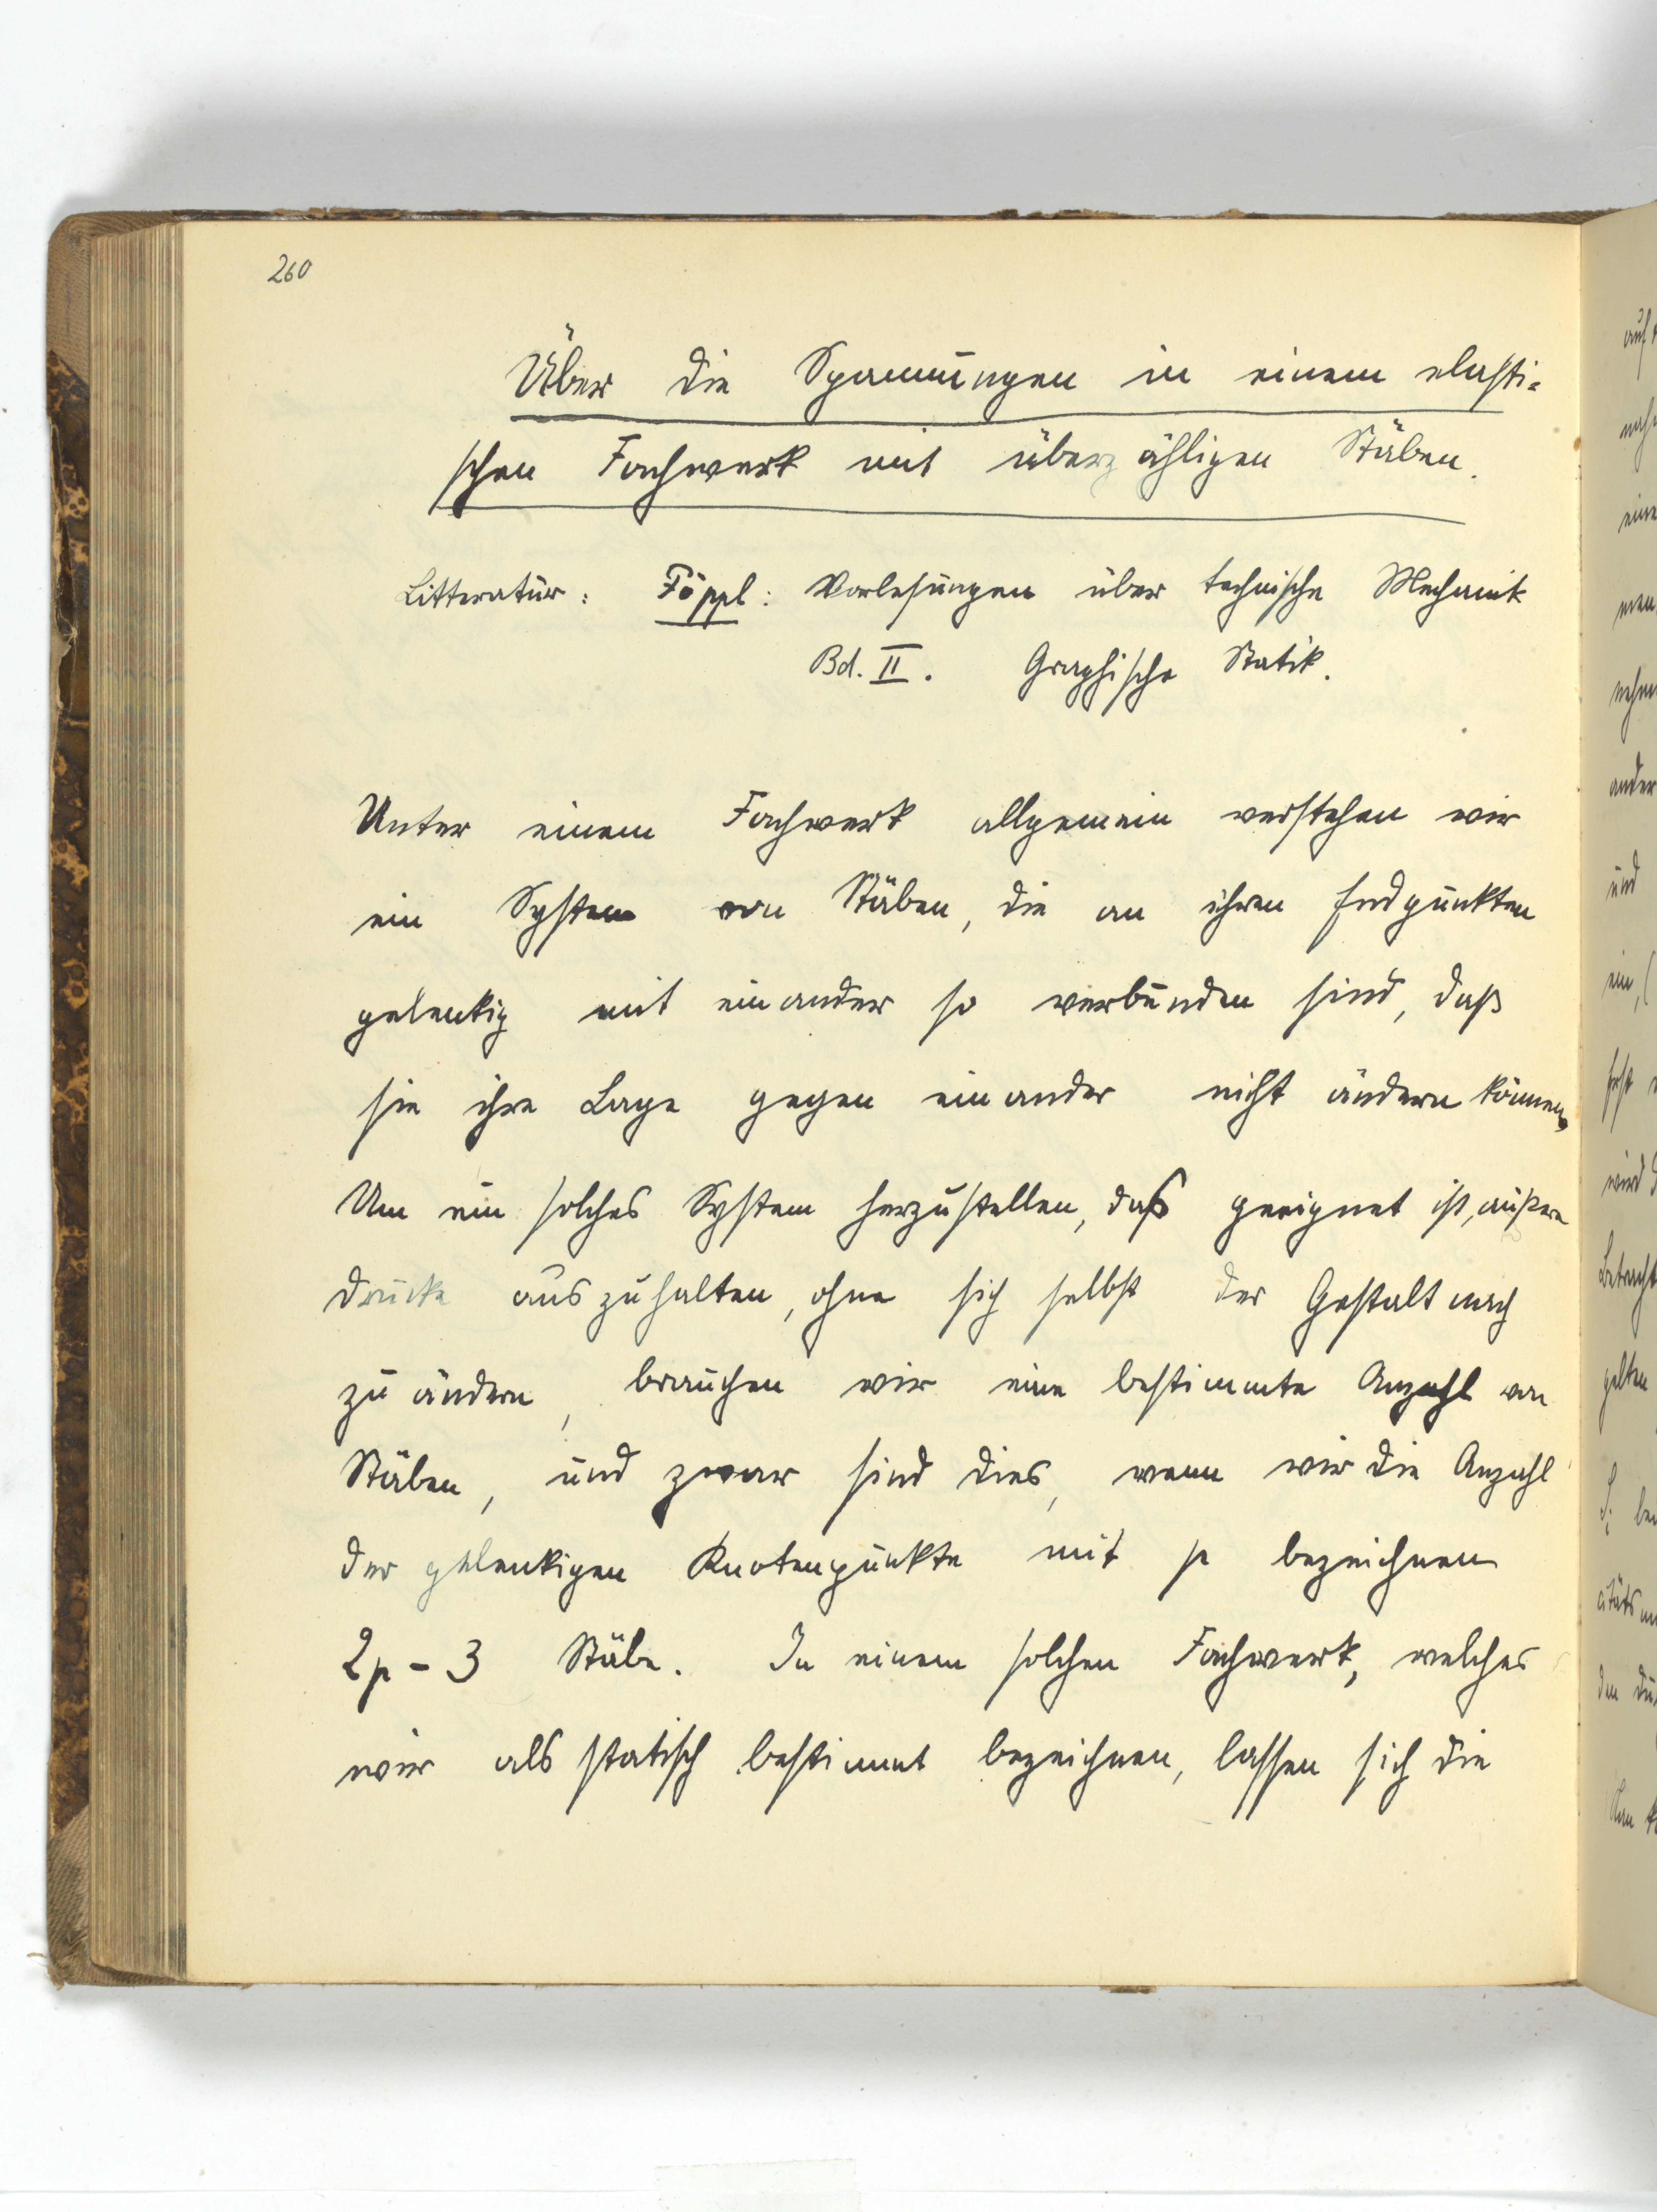 260
Über die Spannungen in einem elasti-
schen Fachwerk mit überzähligen Stäben.
Litteratur: Föppl: Vorlesungen über technische Mechanik
Bd. II. Graphische Statik.
Unter einem Fachwerk allgemein verstehen wir
ein System von Stäben, die an ihren Endpunkten
gelenkig mit einander so verbunden sind, daß
sie ihre Lage gegen einander nicht ändern können.
Um ein solches System herzustellen, daß geeignet ist, äußere
Drucke auszuhalten, ohne sich selbst der Gestalt nach
zu ändern, brauchen wir eine bestimmte Anzahl von
Stäben, und zwar sind dies, wenn wir die Anzahl
der gelenkigen Knotenpunkte mit p bezeichnen
2p - 3 Stäbe. In einem solchen Fachwerk, welches
wir als statisch bestimmt bezeichnen, lassen sich die